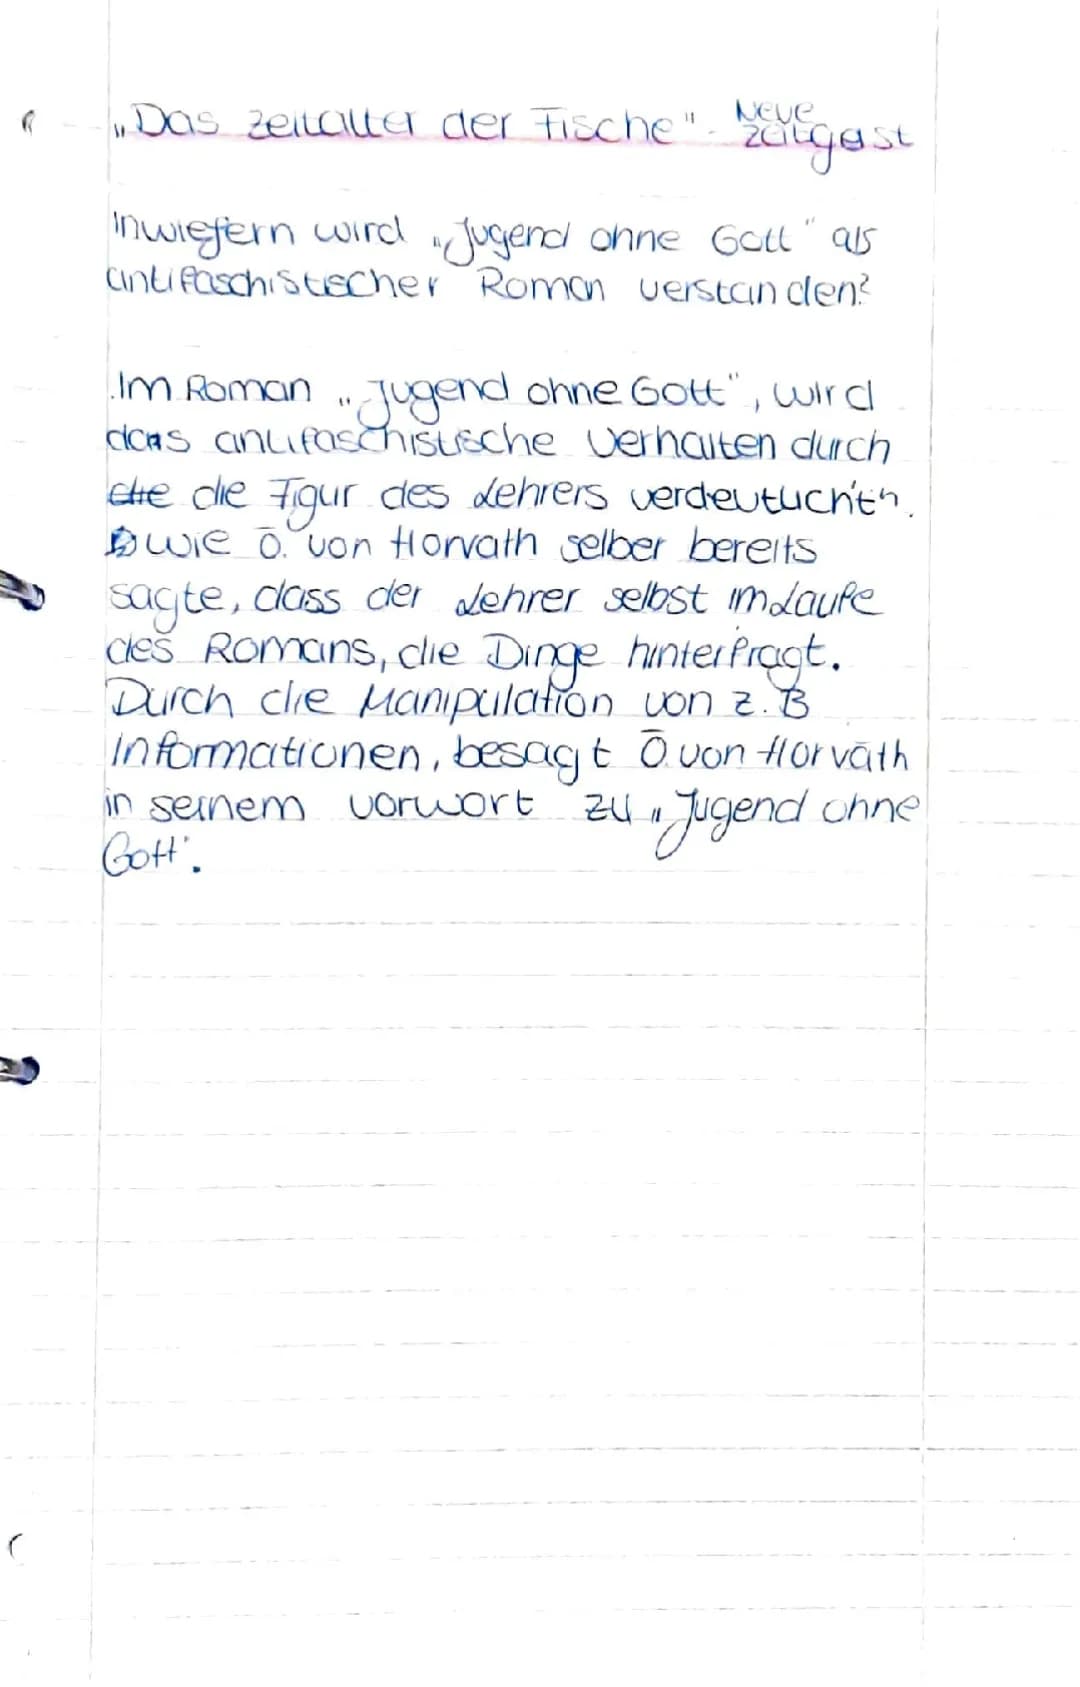 „Das Zeitalter der Fische" - Neue Zeitgeist
Inwiefern wird „Jugend ohne Gott" als
antifaschistischer Roman verstanden?
Im Roman „Jugend ohne Gott", wird
das antifaschistische Verhalten durch
die die Figur des Lehrers verdeutlicht.
Wie Ö. von Horvath selber bereits
sagte, dass der Lehrer selbst im Laufe
des Romans, die Dinge hinterfragt.
Durch die Manipulation von z.B
Informationen, besagt Ö von Horváth
in seinem Vorwort zu „Jugend ohne
Gott".